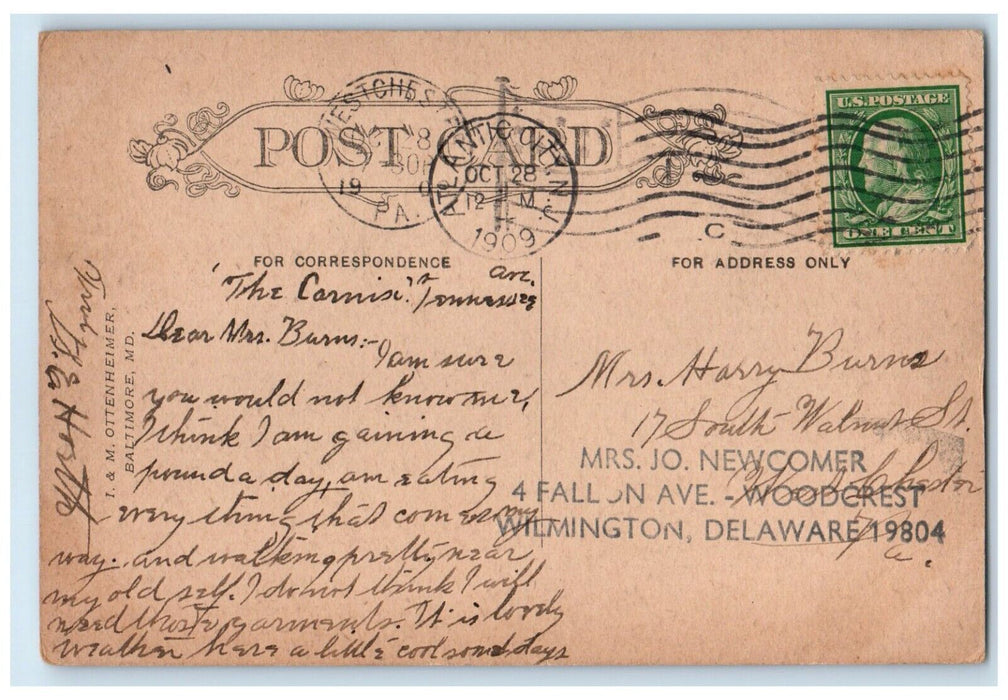 POST CARD
WESTCHES
19
PA.
ATLANTIC CITY, N.J.
OCT 28
12 M
1909
C
U.S. POSTAGE
ONE CENT
FOR CORRESPONDENCE
FOR ADDRESS ONLY
I. & M. OTTENHEIMER,
BALTIMORE, MD.
"The Tennessee ave.
Dear Mrs. Burns:-
I am sure
you would not know me,
I think I am gaining a
pound a day, am eating
every thing that comes my
way. and walking pretty near
my old self. I do not think I will
need those garments. It is lovely
weather here a little cool some days
Mrs. Harry Burns
17 South Walnut St.
West Chester
Pa.
MRS. JO. NEWCOMER
4 FALLON AVE. - WOODCREST
WILMINGTON, DELAWARE 19804